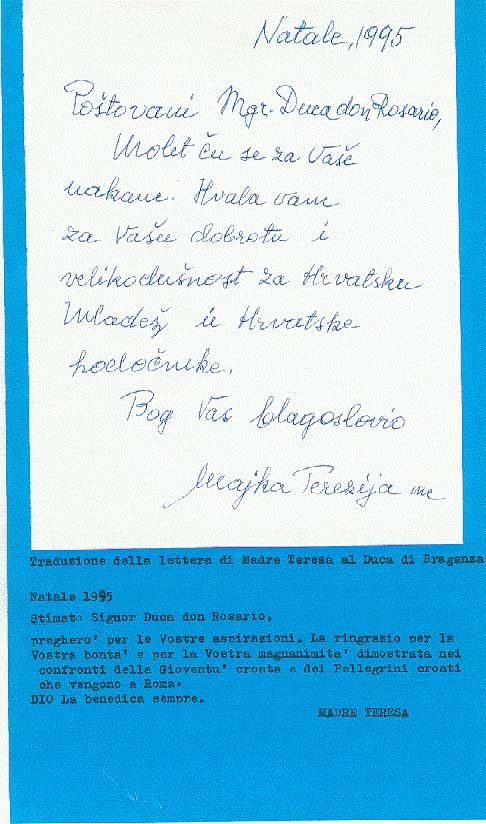 Natale, 1995
Poštovani Mgr. Duca don Rosario,
Molit ću se za Vaše
nakane. Hvala vam
za Vašu dobrotu i
velikodušnost za Hrvatsku
Mladež i Hrvatske
hodočnike.
Bog Vas blagoslovio
Majka Terezija mc
Traduzione della lettera di Madre Teresa al Duca di Braganza
Natale 1995
Stimato Signor Duca don Rosario,
preghero' per le Vostre aspirazioni. La ringrazio per la
Vostra bonta' e per la Vostra magnanimita' dimostrata nei
confronti della Gioventu' croata e dei Pellegrini croati
che vengono a Roma.
DIO La benedica sempre.
MADRE TERESA